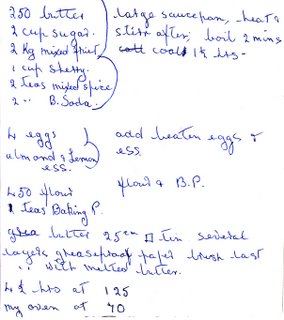 250 butter
2 cup sugar.
2 Kg mixed fruit
1 cup sherry.
2 teas mixed spice
2 " B. Soda.
large saucepan, heat &
stir after, boil 2 mins
cool 1½ hrs.
4 eggs
almond & lemon
ess.
add beaten eggs &
ess.
450 flour
1 teas Baking P.
flour & B.P.
butter 25cm □ tin several
layers greaseproof paper brush last
" with melted butter.
4½ hrs at 125
my oven at 70